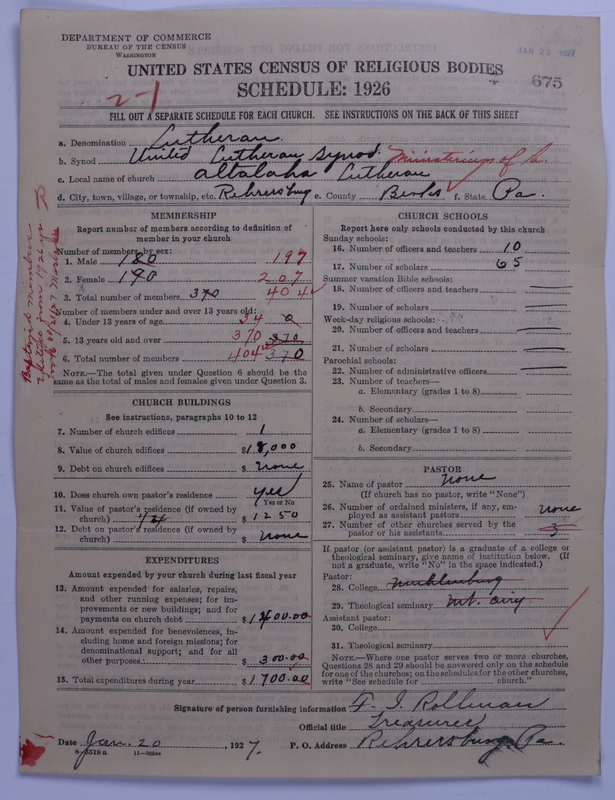 DEPARTMENT OF COMMERCE
BUREAU OF THE CENSUS
WASHINGTON
JAN 22 1927
UNITED STATES CENSUS OF RELIGIOUS BODIES
SCHEDULE: 1926
675
2-1
FILL OUT A SEPARATE SCHEDULE FOR EACH CHURCH. SEE INSTRUCTIONS ON THE BACK OF THIS SHEET
a. Denomination Lutheran
b. Synod United Lutheran Synod. Ministerings of Pa.
c. Local name of church Altalaha Lutheran
d. City, town, village, or township, etc. Rehrersburg e. County Berks f. State Pa.
MEMBERSHIP
Report number of members according to definition of
member in your church
Number of members by sex:
1. Male 180 197
2. Female 190 207
3. Total number of members 370 404
Number of members under and over 13 years old:
4. Under 13 years of age 34 0
5. 13 years old and over 370 370
6. Total number of members 404 370
NOTE.—The total given under Question 6 should be the
same as the total of males and females given under Question 3.
CHURCH BUILDINGS
See instructions, paragraphs 10 to 12
7. Number of church edifices 1
8. Value of church edifices $18,000
9. Debt on church edifices $ none
10. Does church own pastor's residence yes
(Yes or No)
11. Value of pastor's residence (if owned by
church) $1250
12. Debt on pastor's residence (if owned by
church) $ none
EXPENDITURES
Amount expended by your church during last fiscal year
13. Amount expended for salaries, repairs,
and other running expenses; for im-
provements or new buildings; and for
payments on church debt $1400.00
14. Amount expended for benevolences, in-
cluding home and foreign missions; for
denominational support; and for all
other purposes $300.00
15. Total expenditures during year $1700.00
CHURCH SCHOOLS
Report here only schools conducted by this church
Sunday schools:
16. Number of officers and teachers 10
17. Number of scholars 65
Summer vacation Bible schools:
18. Number of officers and teachers
19. Number of scholars
Week-day religious schools:
20. Number of officers and teachers
21. Number of scholars
Parochial schools:
22. Number of administrative officers
23. Number of teachers—
a. Elementary (grades 1 to 8)
b. Secondary
24. Number of scholars—
a. Elementary (grades 1 to 8)
b. Secondary
PASTOR
25. Name of pastor none
(If church has no pastor, write "None")
26. Number of ordained ministers, if any, em-
ployed as assistant pastors none
27. Number of other churches served by the
pastor or his assistants 3
If pastor (or assistant pastor) is a graduate of a college or
theological seminary, give name of institution below. (If
not a graduate, write "No" in the space indicated.)
Pastor:
28. College Muhlenburg
29. Theological seminary Mt. Airy
Assistant pastor:
30. College
31. Theological seminary
NOTE.—Where one pastor serves two or more churches,
Questions 28 and 29 should be answered only on the schedule
for one of the churches; on the schedules for the other churches,
write "See schedule for church."
Signature of person furnishing information F. I. Rollman
Official title Treasurer
Date Jan. 20, 1927. P. O. Address Rehrersburg Pa.
8-5518a 11-9051a